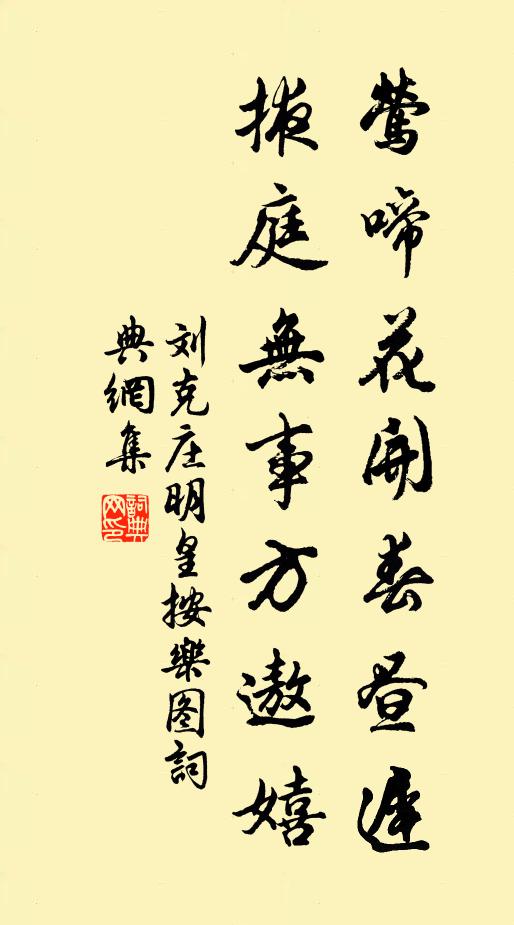 莺啼花開春昼遅
掖庭無事方遨嬉
刘克庄明皇按樂图詞
典網集
詞典
网印